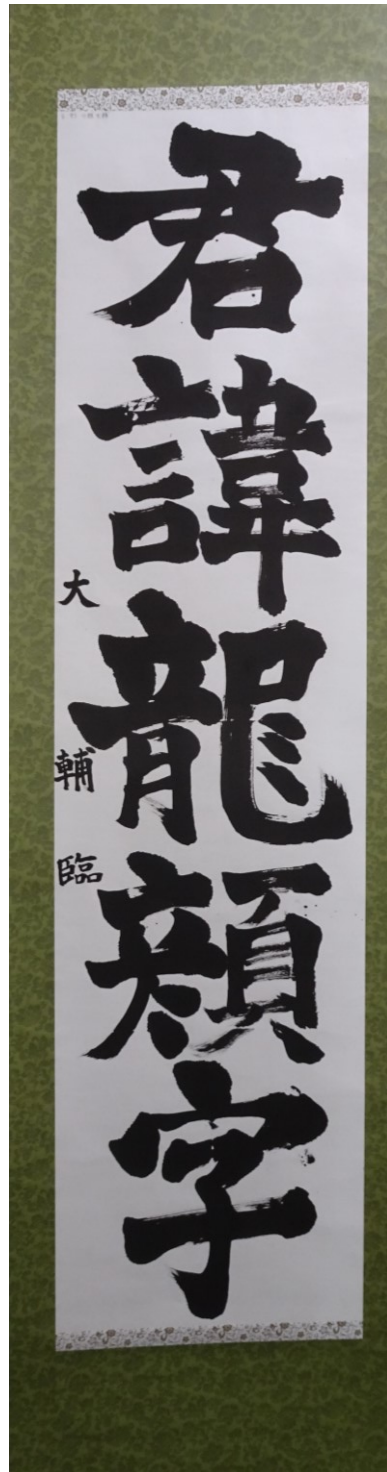 君諱龍顔字
大輔臨